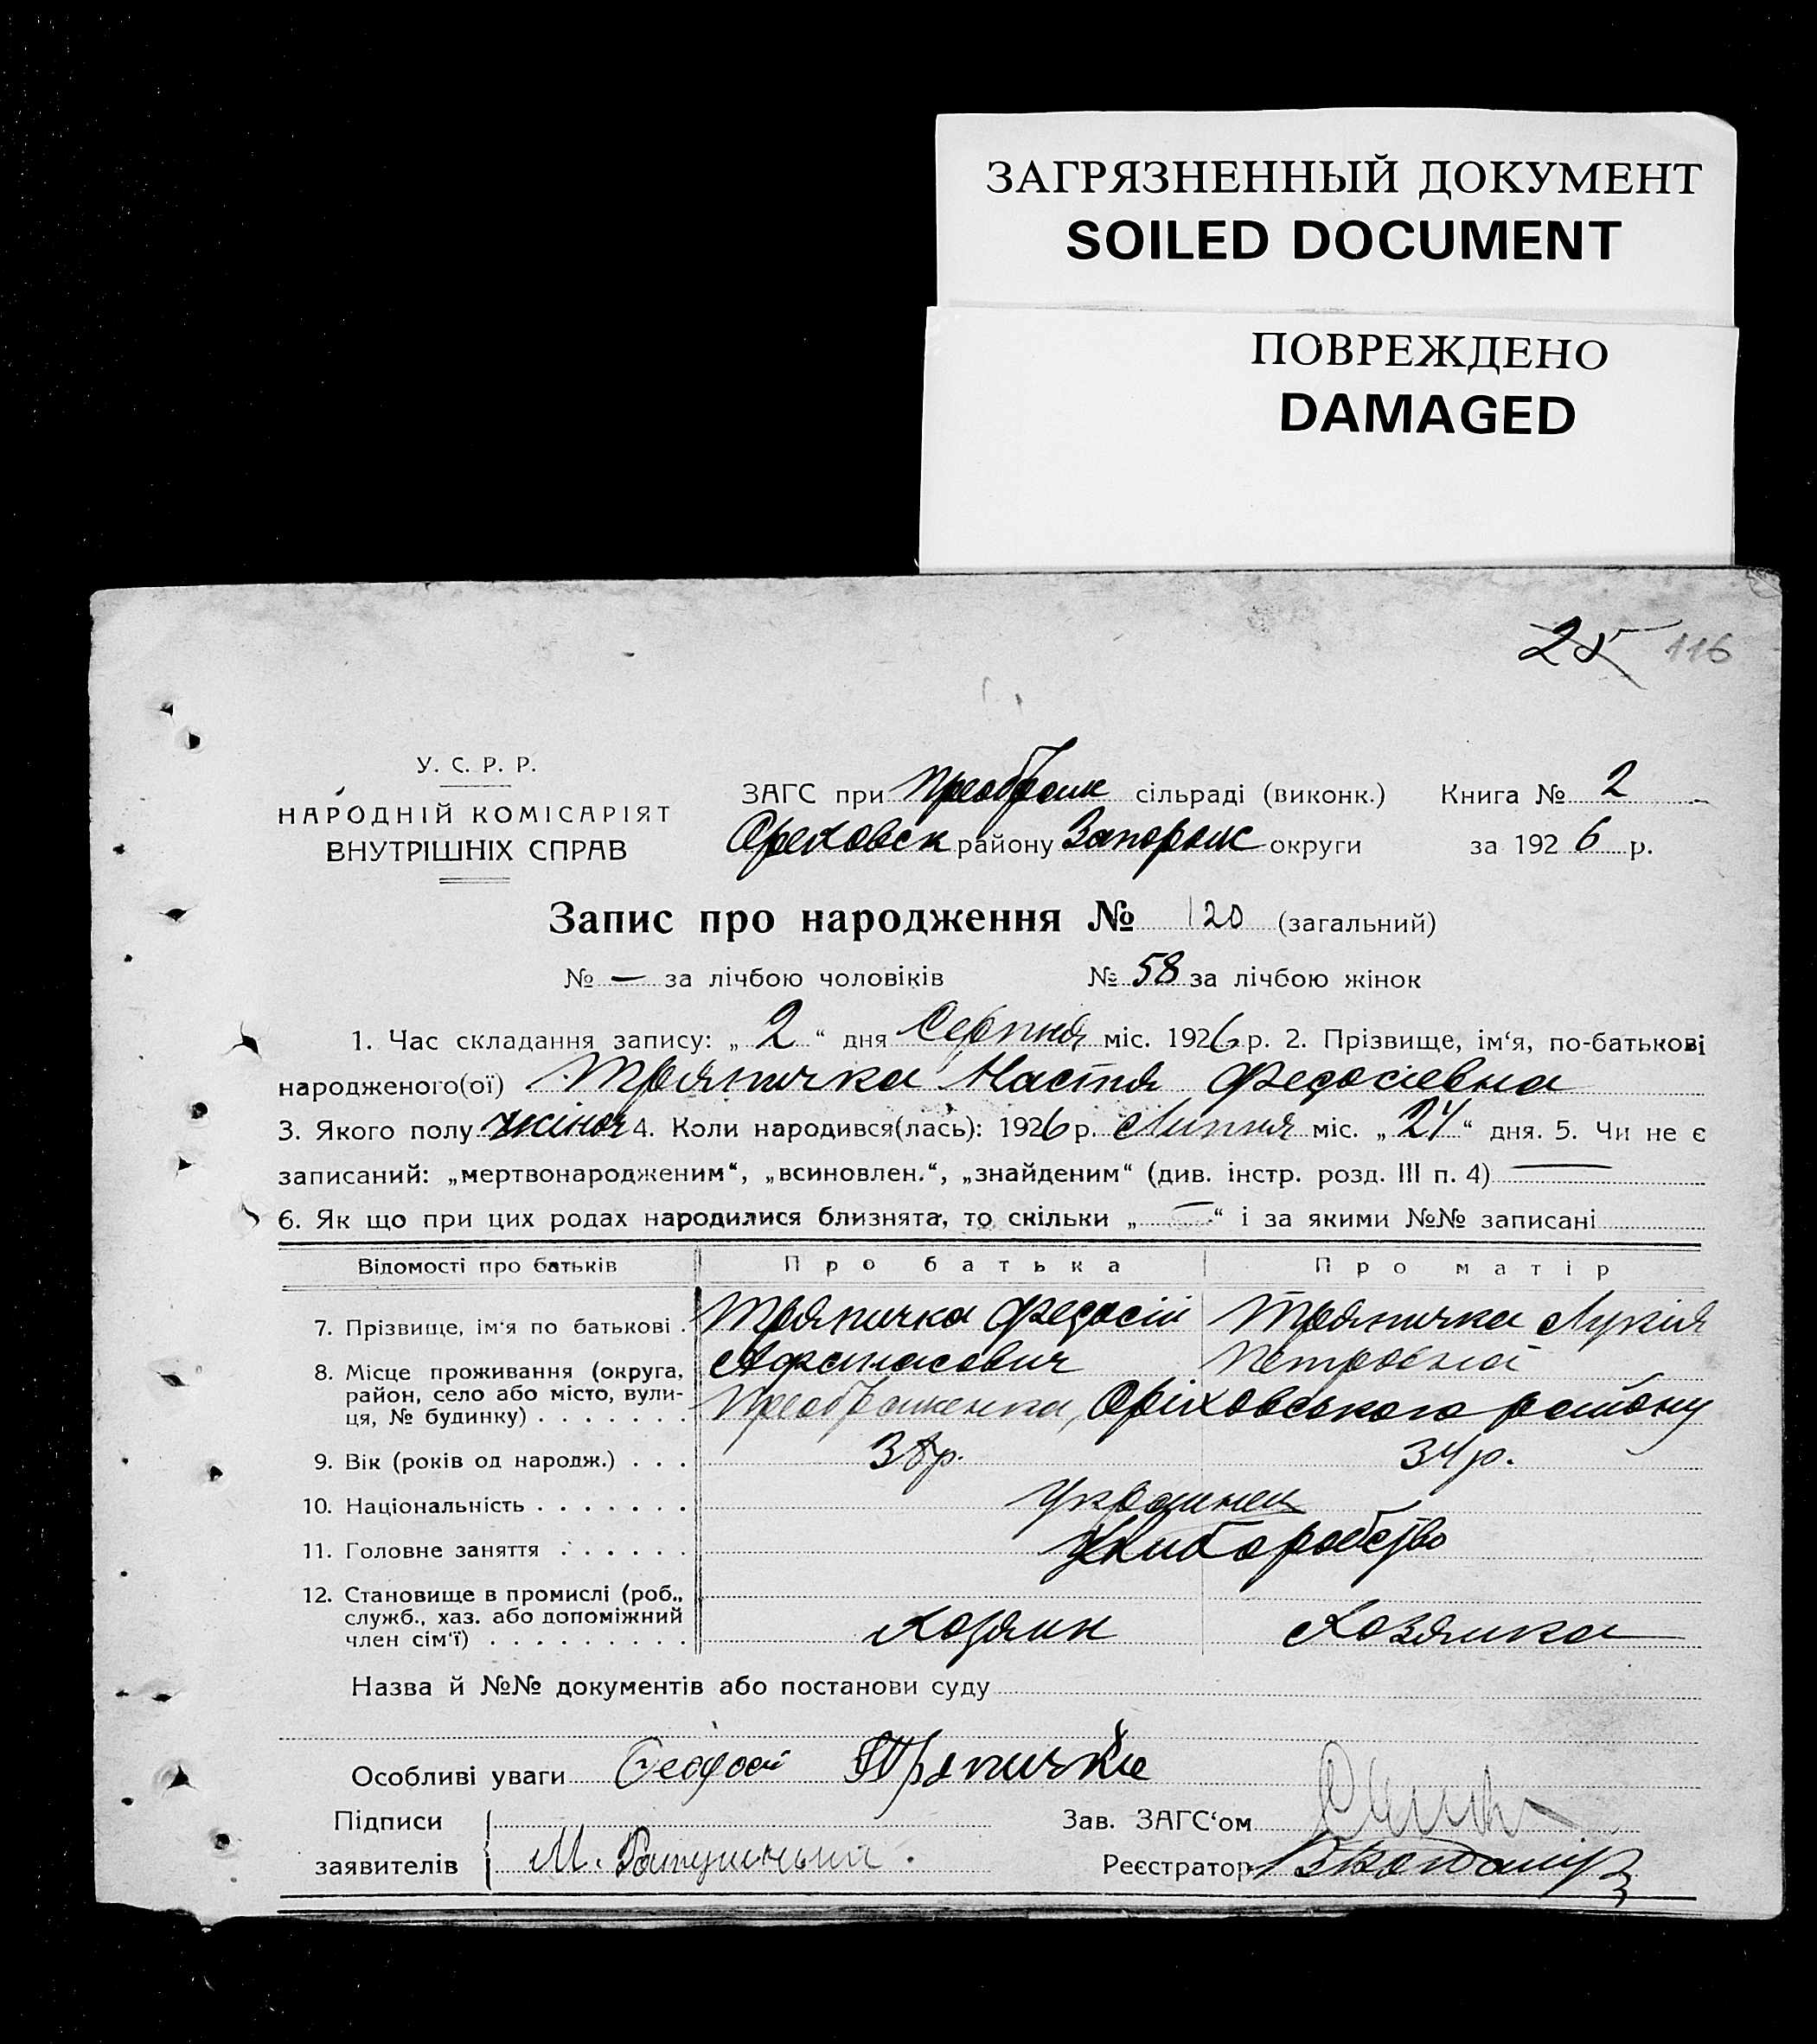 ЗАГРЯЗНЕННЫЙ ДОКУМЕНТ
SOILED DOCUMENT
ПОВРЕЖДЕНО
DAMAGED
25 116
У. С. Р. Р.
НАРОДНІЙ КОМІСАРІЯТ
ВНУТРІШНІХ СПРАВ
ЗАГС при Преображ сільраді (виконк.) Книга № 2
Ореховск району Запорож округи за 1926 р.
Запис про народження № 120 (загальний)
№ — за лічбою чоловіків № 58 за лічбою жінок
1. Час складання запису: „ 2 “ дня Серпня міс. 1926 р. 2. Прізвище, ім‘я, по-батькові
народженого(ої) Тряпичка Настя Федосіевна
3. Якого полу жіноч 4. Коли народився(лась): 1926 р. Липня міс. „ 24 “ дня. 5. Чи не є
записаний: „мертвонародженим“, „всиновлен.“, „знайденим“ (див. інстр. розд. III п. 4) —
6. Як що при цих родах народилися близнята, то скільки „ — “ і за якими №№ записані
Відомості про батьків Про батька Про матір
7. Прізвище, ім‘я по батькові . Тряпичка Федосій Тряпичка Лукія
Афанасович Петровна
8. Місце проживання (округа,
район, село або місто, вули-
ця, № будинку) . . . . . . . Преображенка, Оріховського району
9. Вік (років од народж.) . . . 38 р. 34 р.
10. Національність . . . . . . . Украинец
11. Головне заняття . . . . . . Хлиборобство
12. Становище в промислі (роб.,
служб., хаз. або допоміжний
член сім‘ї) . . . . . . . . . Хозяин Хозяика
Назва й №№ документів або постанови суду
Особливі уваги Феодосй Тряпичка
Підписи
заявителів М.
Зав. ЗАГС‘ом
Реєстратор